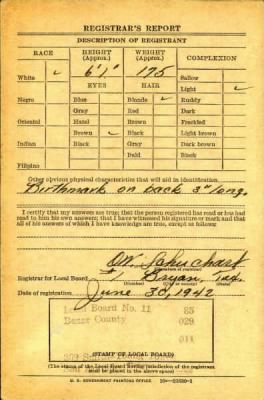 REGISTRAR'S REPORT
DESCRIPTION OF REGISTRANT
RACE HEIGHT (Approx.) WEIGHT (Approx.) COMPLEXION
White ✓ 6' 1" 175 Sallow
EYES HAIR Light ✓
Negro Blue Blonde ✓ Ruddy
Gray Red Dark
Oriental Hazel Brown Freckled
Brown ✓ Black Light brown
Indian Black Gray Dark brown
Bald Black
Filipino
Other obvious physical characteristics that will aid in identification
Birthmark on back 3" long.
I certify that my answers are true; that the person registered has read or has had
read to him his own answers; that I have witnessed his signature or mark and that
all of his answers of which I have knowledge are true, except as follows:
(Signature of registrar)
Registrar for Local Board 1 Bryan, Tex.
Date of registration June 30, 1942
Local Board No. 11 85
Bexar County 029
011
(STAMP OF LOCAL BOARD)
(The stamp of the Local Board having jurisdiction of the registrant
shall be placed in the above space)
U. S. GOVERNMENT PRINTING OFFICE